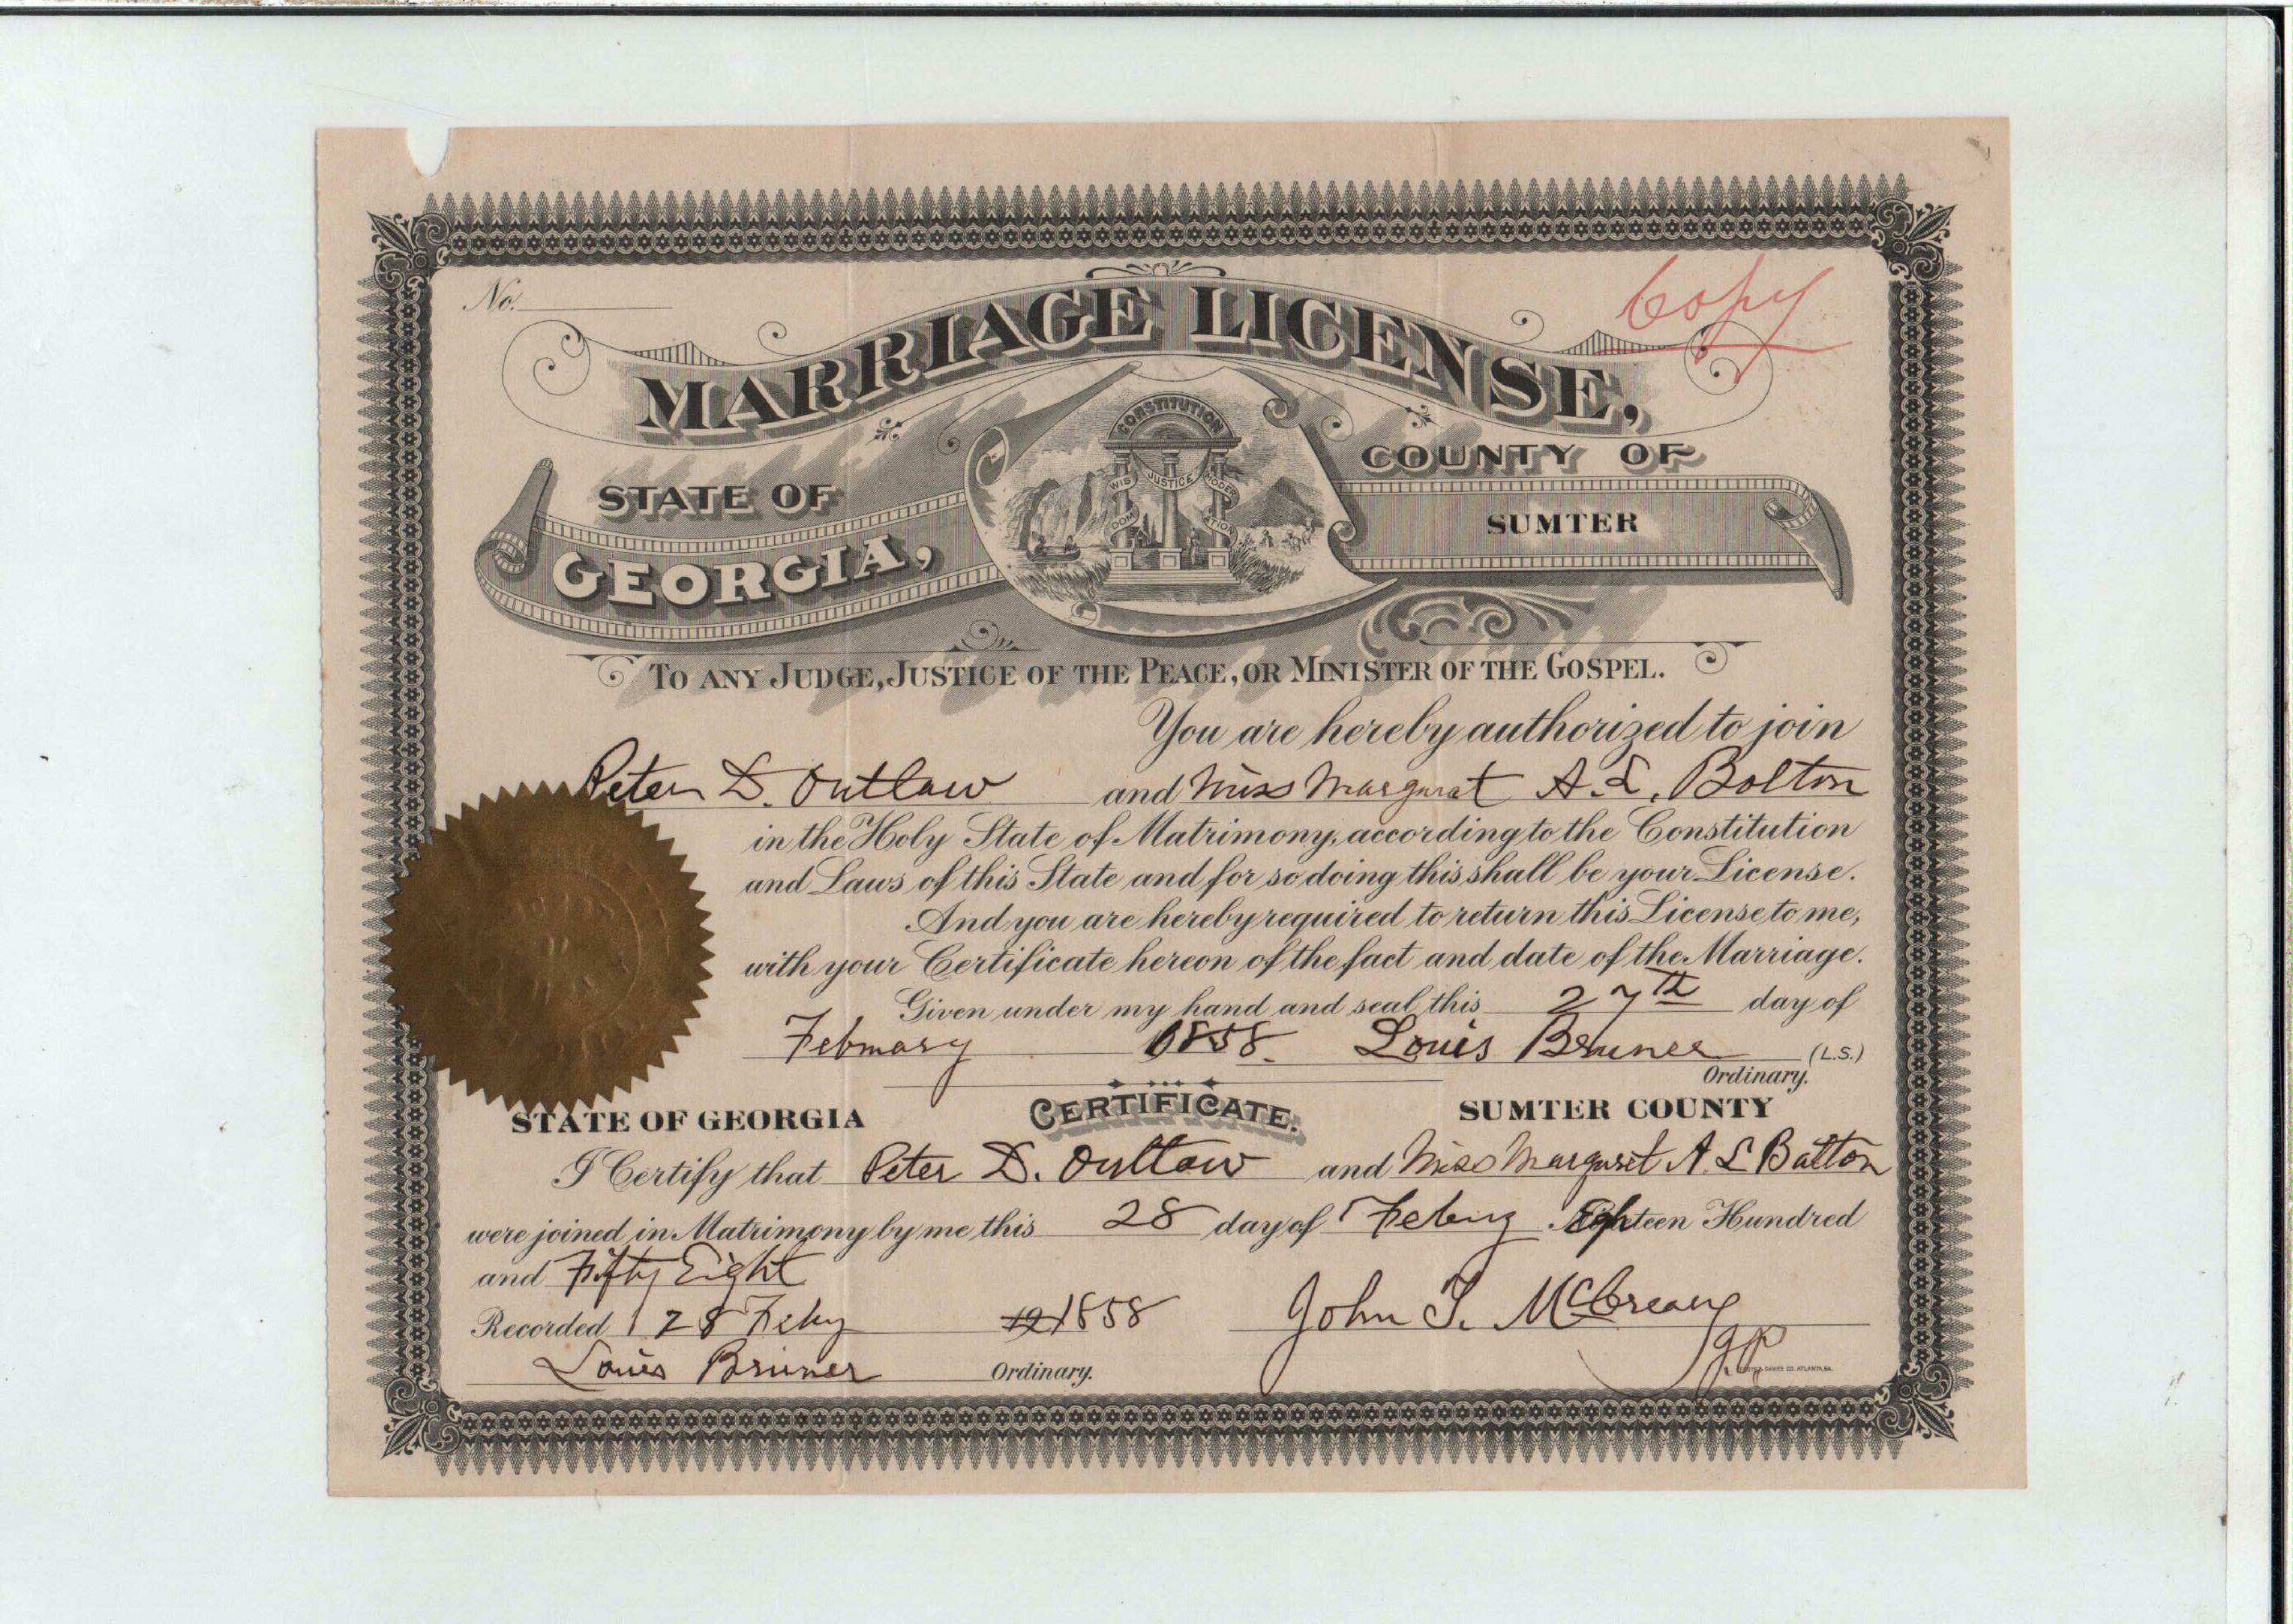 No.
Copy
MARRIAGE LICENSE,
CONSTITUTION
WIS DOM JUSTICE MODER ATION
STATE OF GEORGIA,
COUNTY OF SUMTER
TO ANY JUDGE, JUSTICE OF THE PEACE, OR MINISTER OF THE GOSPEL.
You are hereby authorized to join
Peter D. Outlaw and Miss Margurat A. L. Bolton
in the Holy State of Matrimony, according to the Constitution
and Laws of this State and for so doing this shall be your License.
And you are hereby required to return this License to me,
with your Certificate hereon of the fact and date of the Marriage.
Given under my hand and seal this 27th day of
February 1858. Louis Bruner (L.S.)
Ordinary.
STATE OF GEORGIA CERTIFICATE. SUMTER COUNTY
I Certify that Peter D. Outlaw and Miss Margurit A L Batton
were joined in Matrimony by me this 28 day of Eighteen Hundred
and Fifty Eight
Recorded 28 Feby 19 1858 John T. McCreary
Louis Bruner Ordinary. J.P.